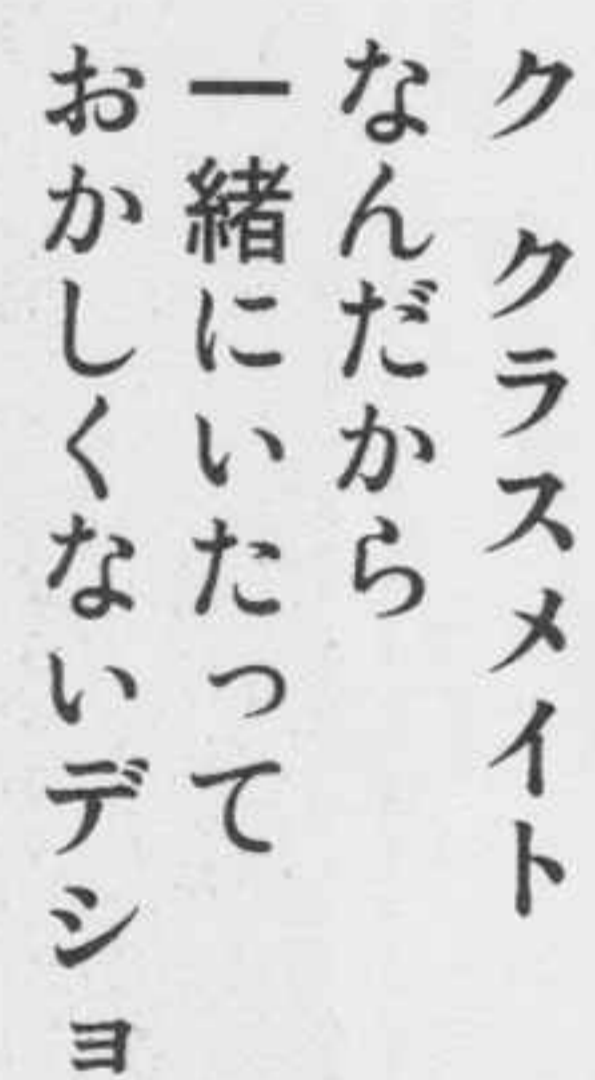 ク クラスメイト
なんだから
一緒にいたって
おかしくないデショ